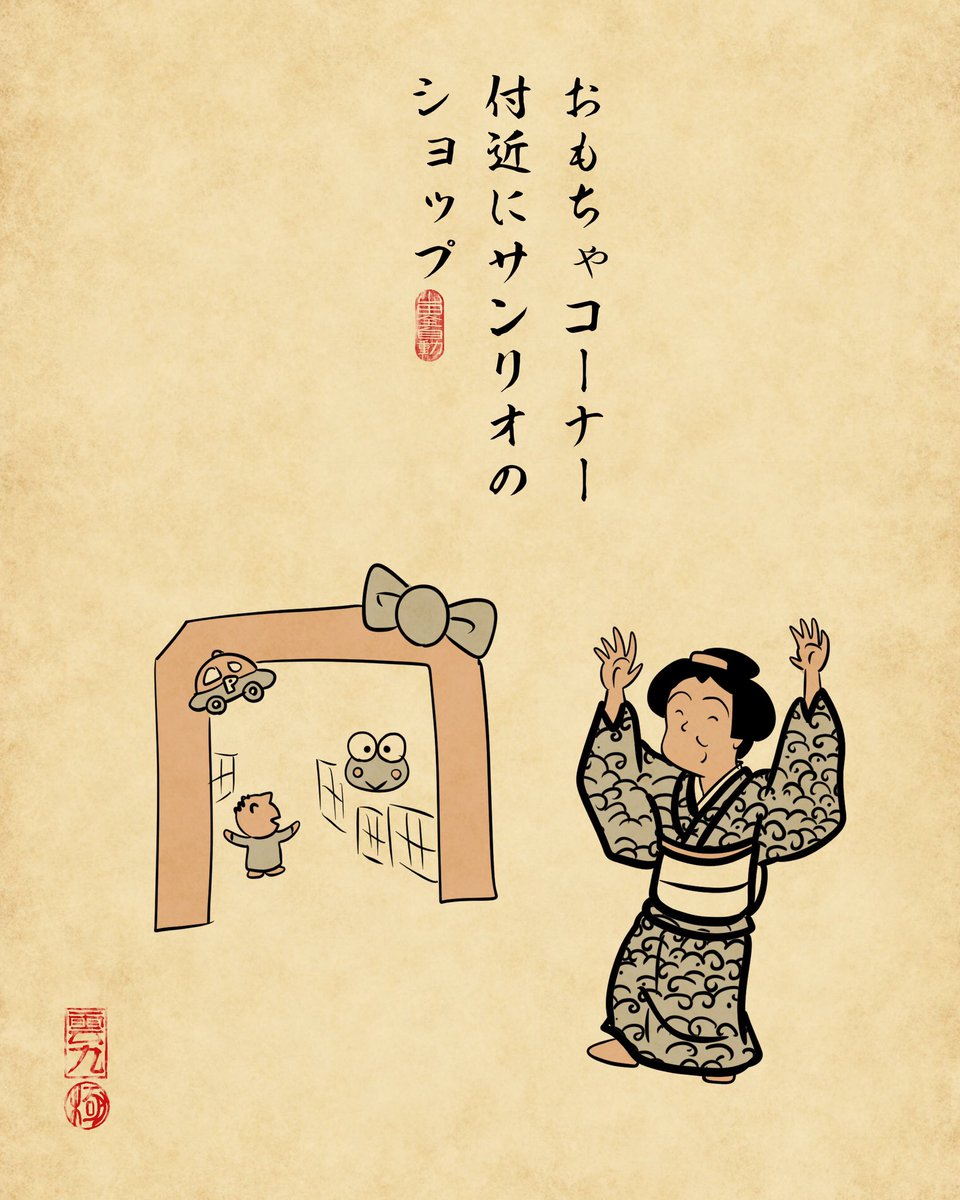 おもちゃコーナー
付近にサンリオの
ショップ
P